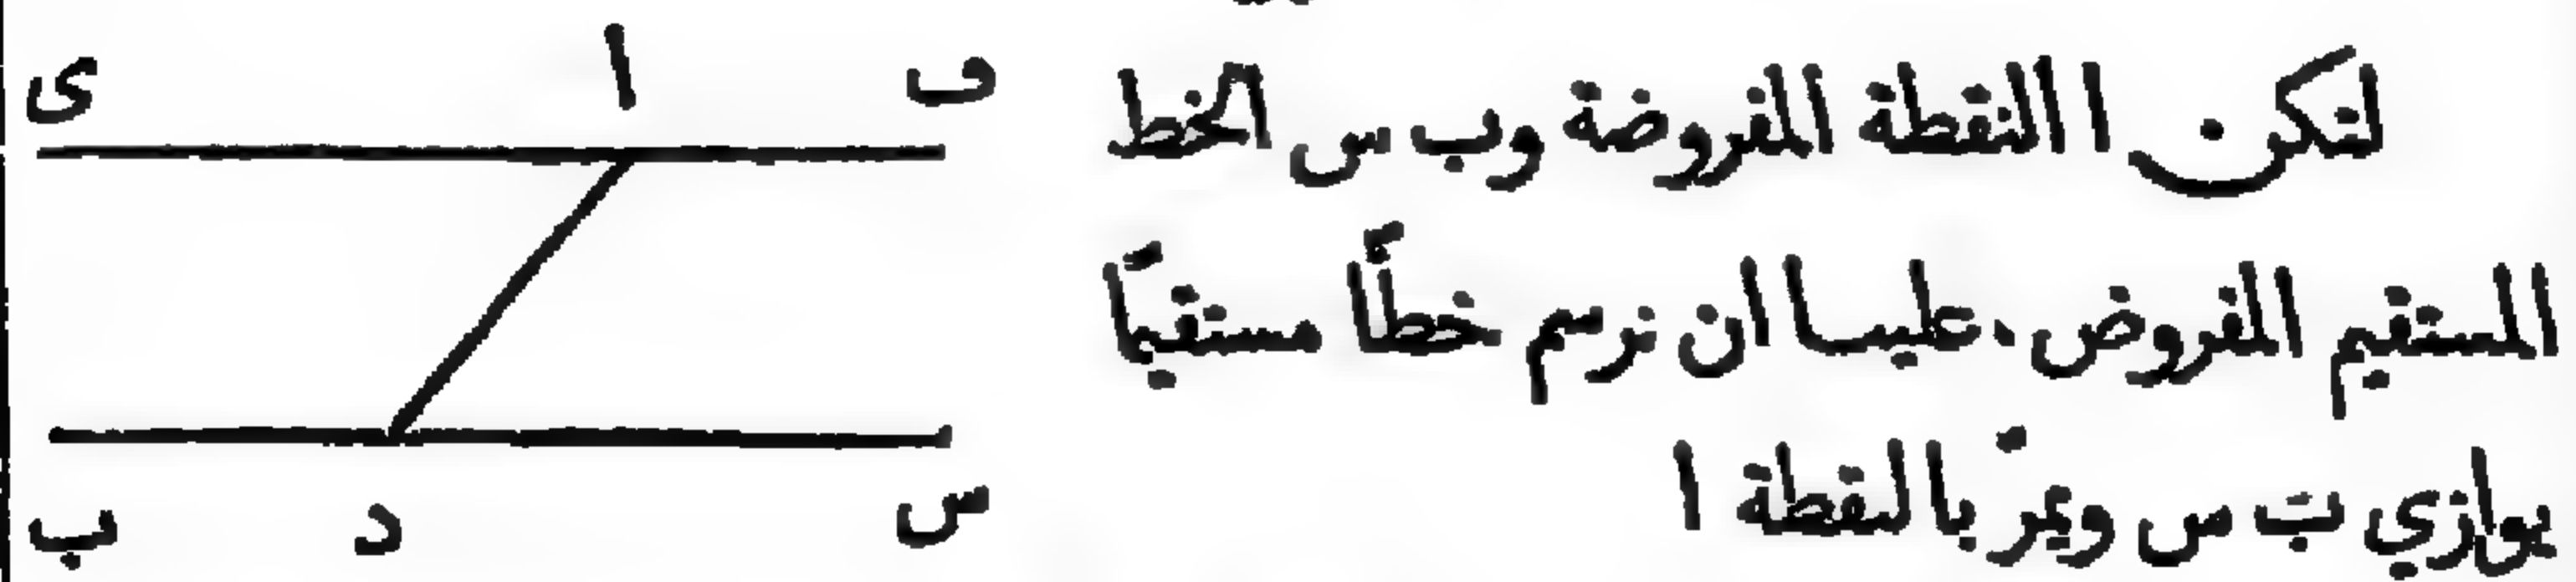 لتكن ا النقطة المفروضة وب س الخط
المستقيم المفروض، علينا ان نرسم خطًّا مستقيمًا
يوازي ب س ويمرّ بالنقطة ا
ف ا ى
س د ب